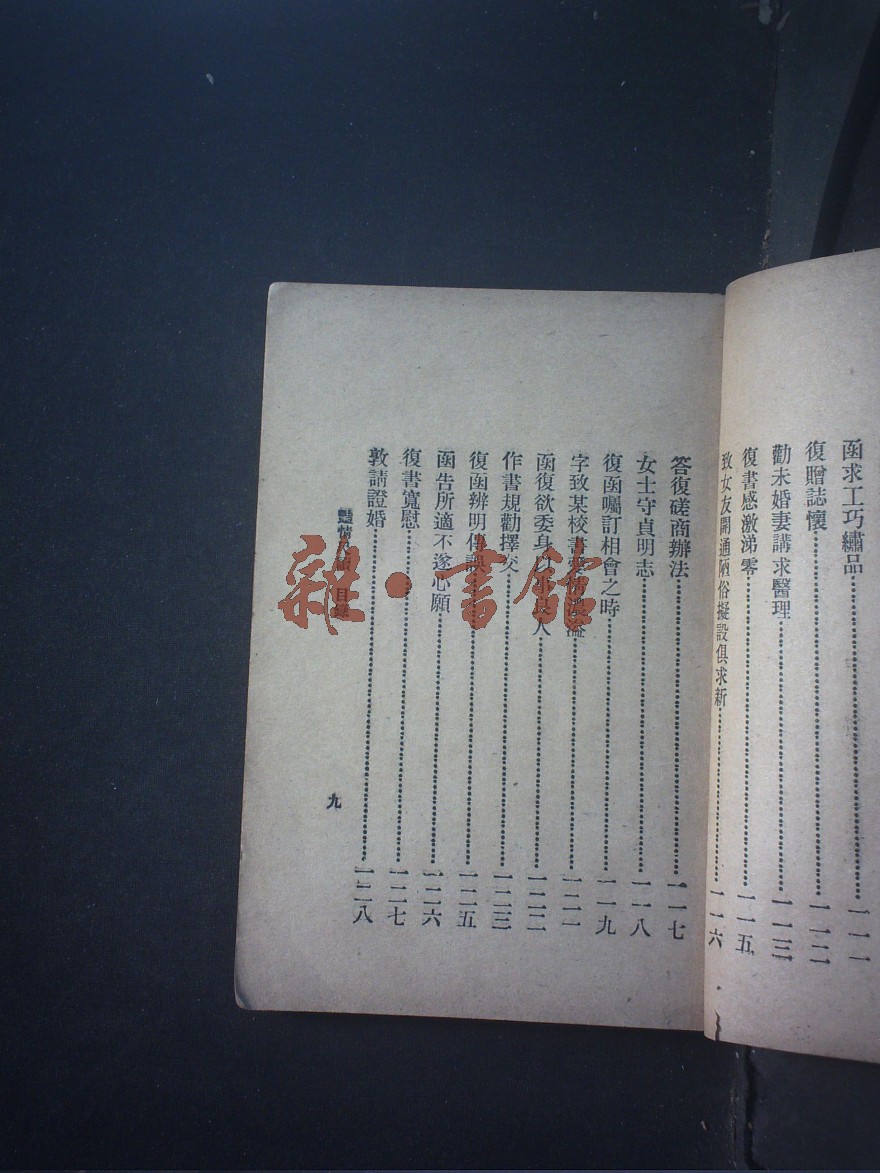 函求工巧繡品……一一一
復贈誌懷……一一二
勸未婚妻講求醫理……一一三
復書感激涕零……一一五
致女友開通陋俗擬設俱求新……一一六
答復磋商辦法……一一七
女士守貞明志……一一八
復函囑訂相會之時……一一九
字致某校書愛情濃溢……一二一
函復欲委身以事良人……一二二
作書規勸擇交……一二三
復函辨明傳誤……一二五
函告所適不遂心願……一二六
復書寬慰……一二七
敦請證婚……一二八
艷情 目錄
九
雜·書館